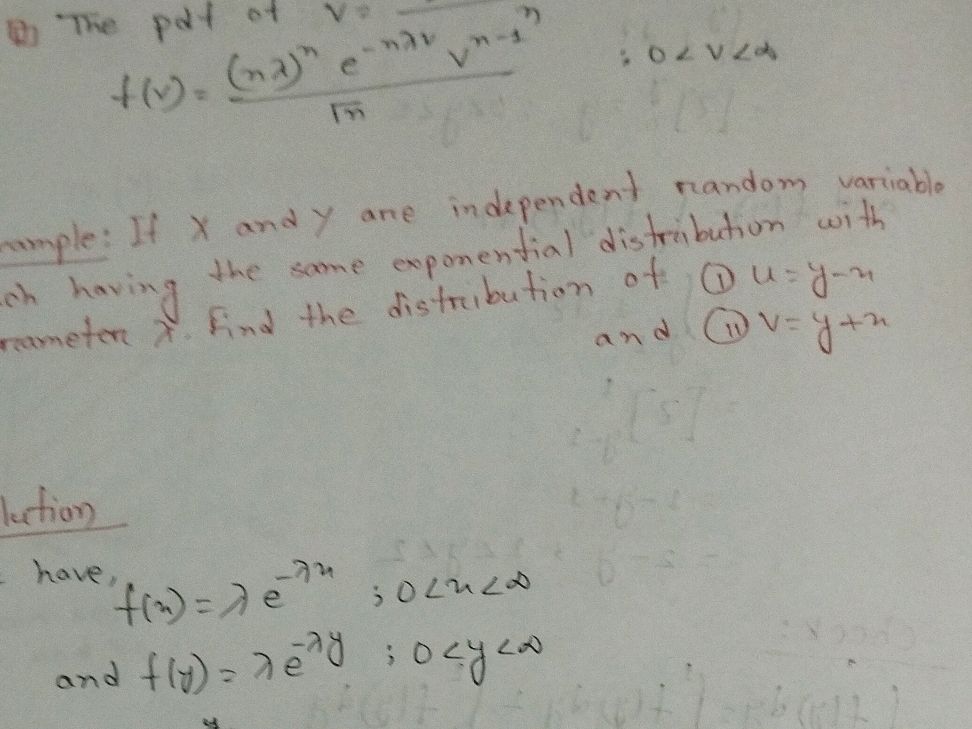 The pdf of v =
n
f(v) = (nλ)ⁿ e^{-nλv} v^{n-1} / √n ; 0<v<∞
ample: If X and Y are independent random variable
ch having the same exponential distribution with
rameter λ. Find the distribution of ① u = y-x
and ⑪ v = y+x
lution
have,
f(x) = λe^{-λx} ; 0<x<∞
and f(y) = λe^{-λy} ; 0<y<∞